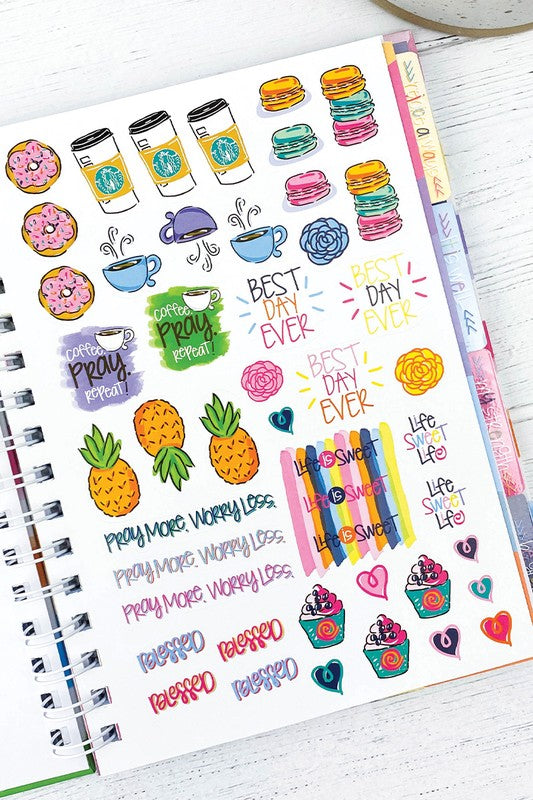 BEST
DAY
EVER
BEST
DAY
EVER
Coffee,
PRAY.
REPEAT!
Coffee,
PRAY.
REPEAT!
BEST
DAY
EVER
Life is Sweet
Life is Sweet
Life is Sweet
Life
SWEET
Life
Life
SWEET
Life
PRAY MORE. WORRY LESS.
PRAY MORE. WORRY LESS.
PRAY MORE. WORRY LESS.
BLESSED
BLESSED
BLESSED
BLESSED